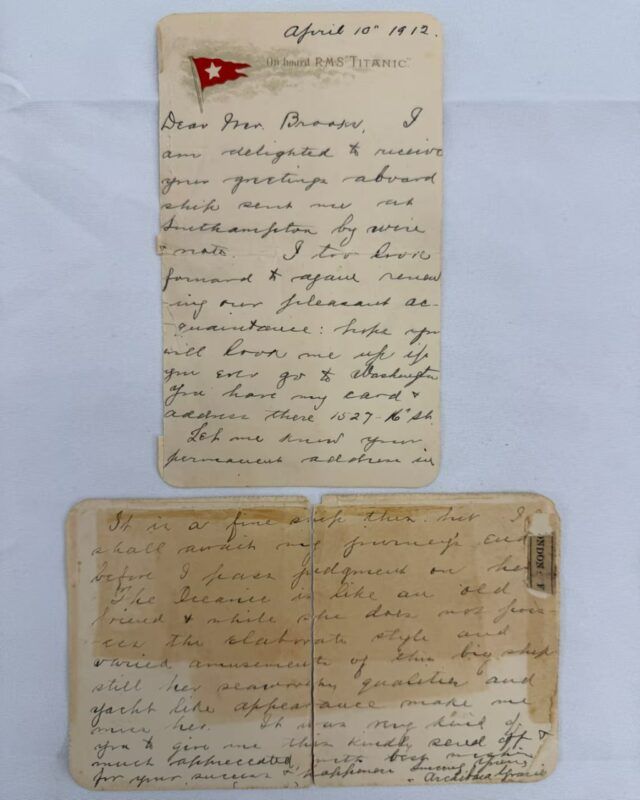 April 10" 1912.
On board R.M.S "TITANIC".
Dear Mr. Brooks, I
am delighted to receive
your greetings aboard
ship sent me at
Southampton by wire
& note. I too look
forward to again renew
-ing our pleasant ac-
quaintance: hope you
will look me up if
you ever go to Washington
You have my card &
address there 1527-16" St.
Let me know your
permanent address in
It is a fine ship this but I
shall await my journey's end
before I pass judgment on her
The Oceanic is like an old
friend & while she does not poss-
-ess the elaborate style and
varied amusements of this big ship
still her seaworthy qualities and
yacht like appearance make me
miss her. It was very kind of
you to give me this kindly send off &
much appreciated, with best wishes
for your success & happiness Sincerely yours
Archibald Gracie
ONDON: W